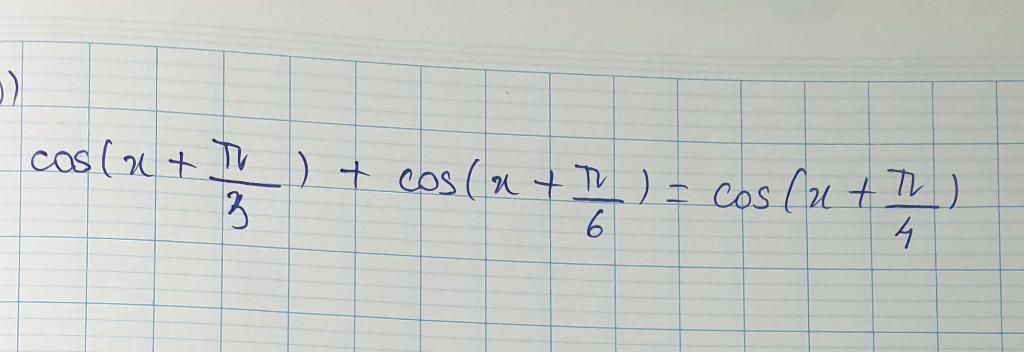 )
cos(x + π/3) + cos(x + π/6) = cos(x + π/4)